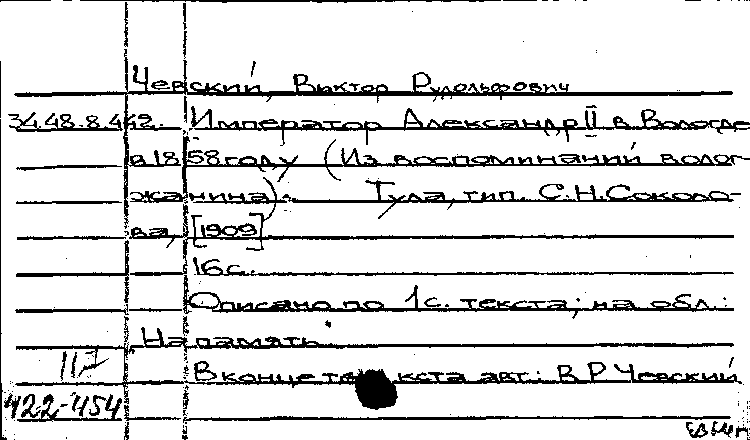 Чевский, Виктор Рудольфович
34.48.8.442. Император Александр II в Вологде
в 1858 году (Из воспоминаний волог-
жанина). Тула, тип. С.Н.Соколо-
ва, [1909]
16 с.
Описано по 1 с. текста; на обл.:
"На память"
В конце текста авт.: В Р Чевский
422-454